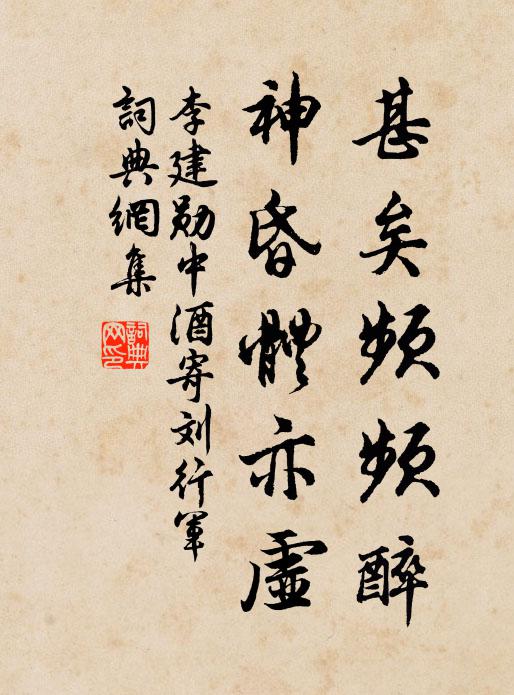 甚矣频频醉
神昏體亦虛
李建勋中酒寄刘行軍
詞典網集
詞典网印